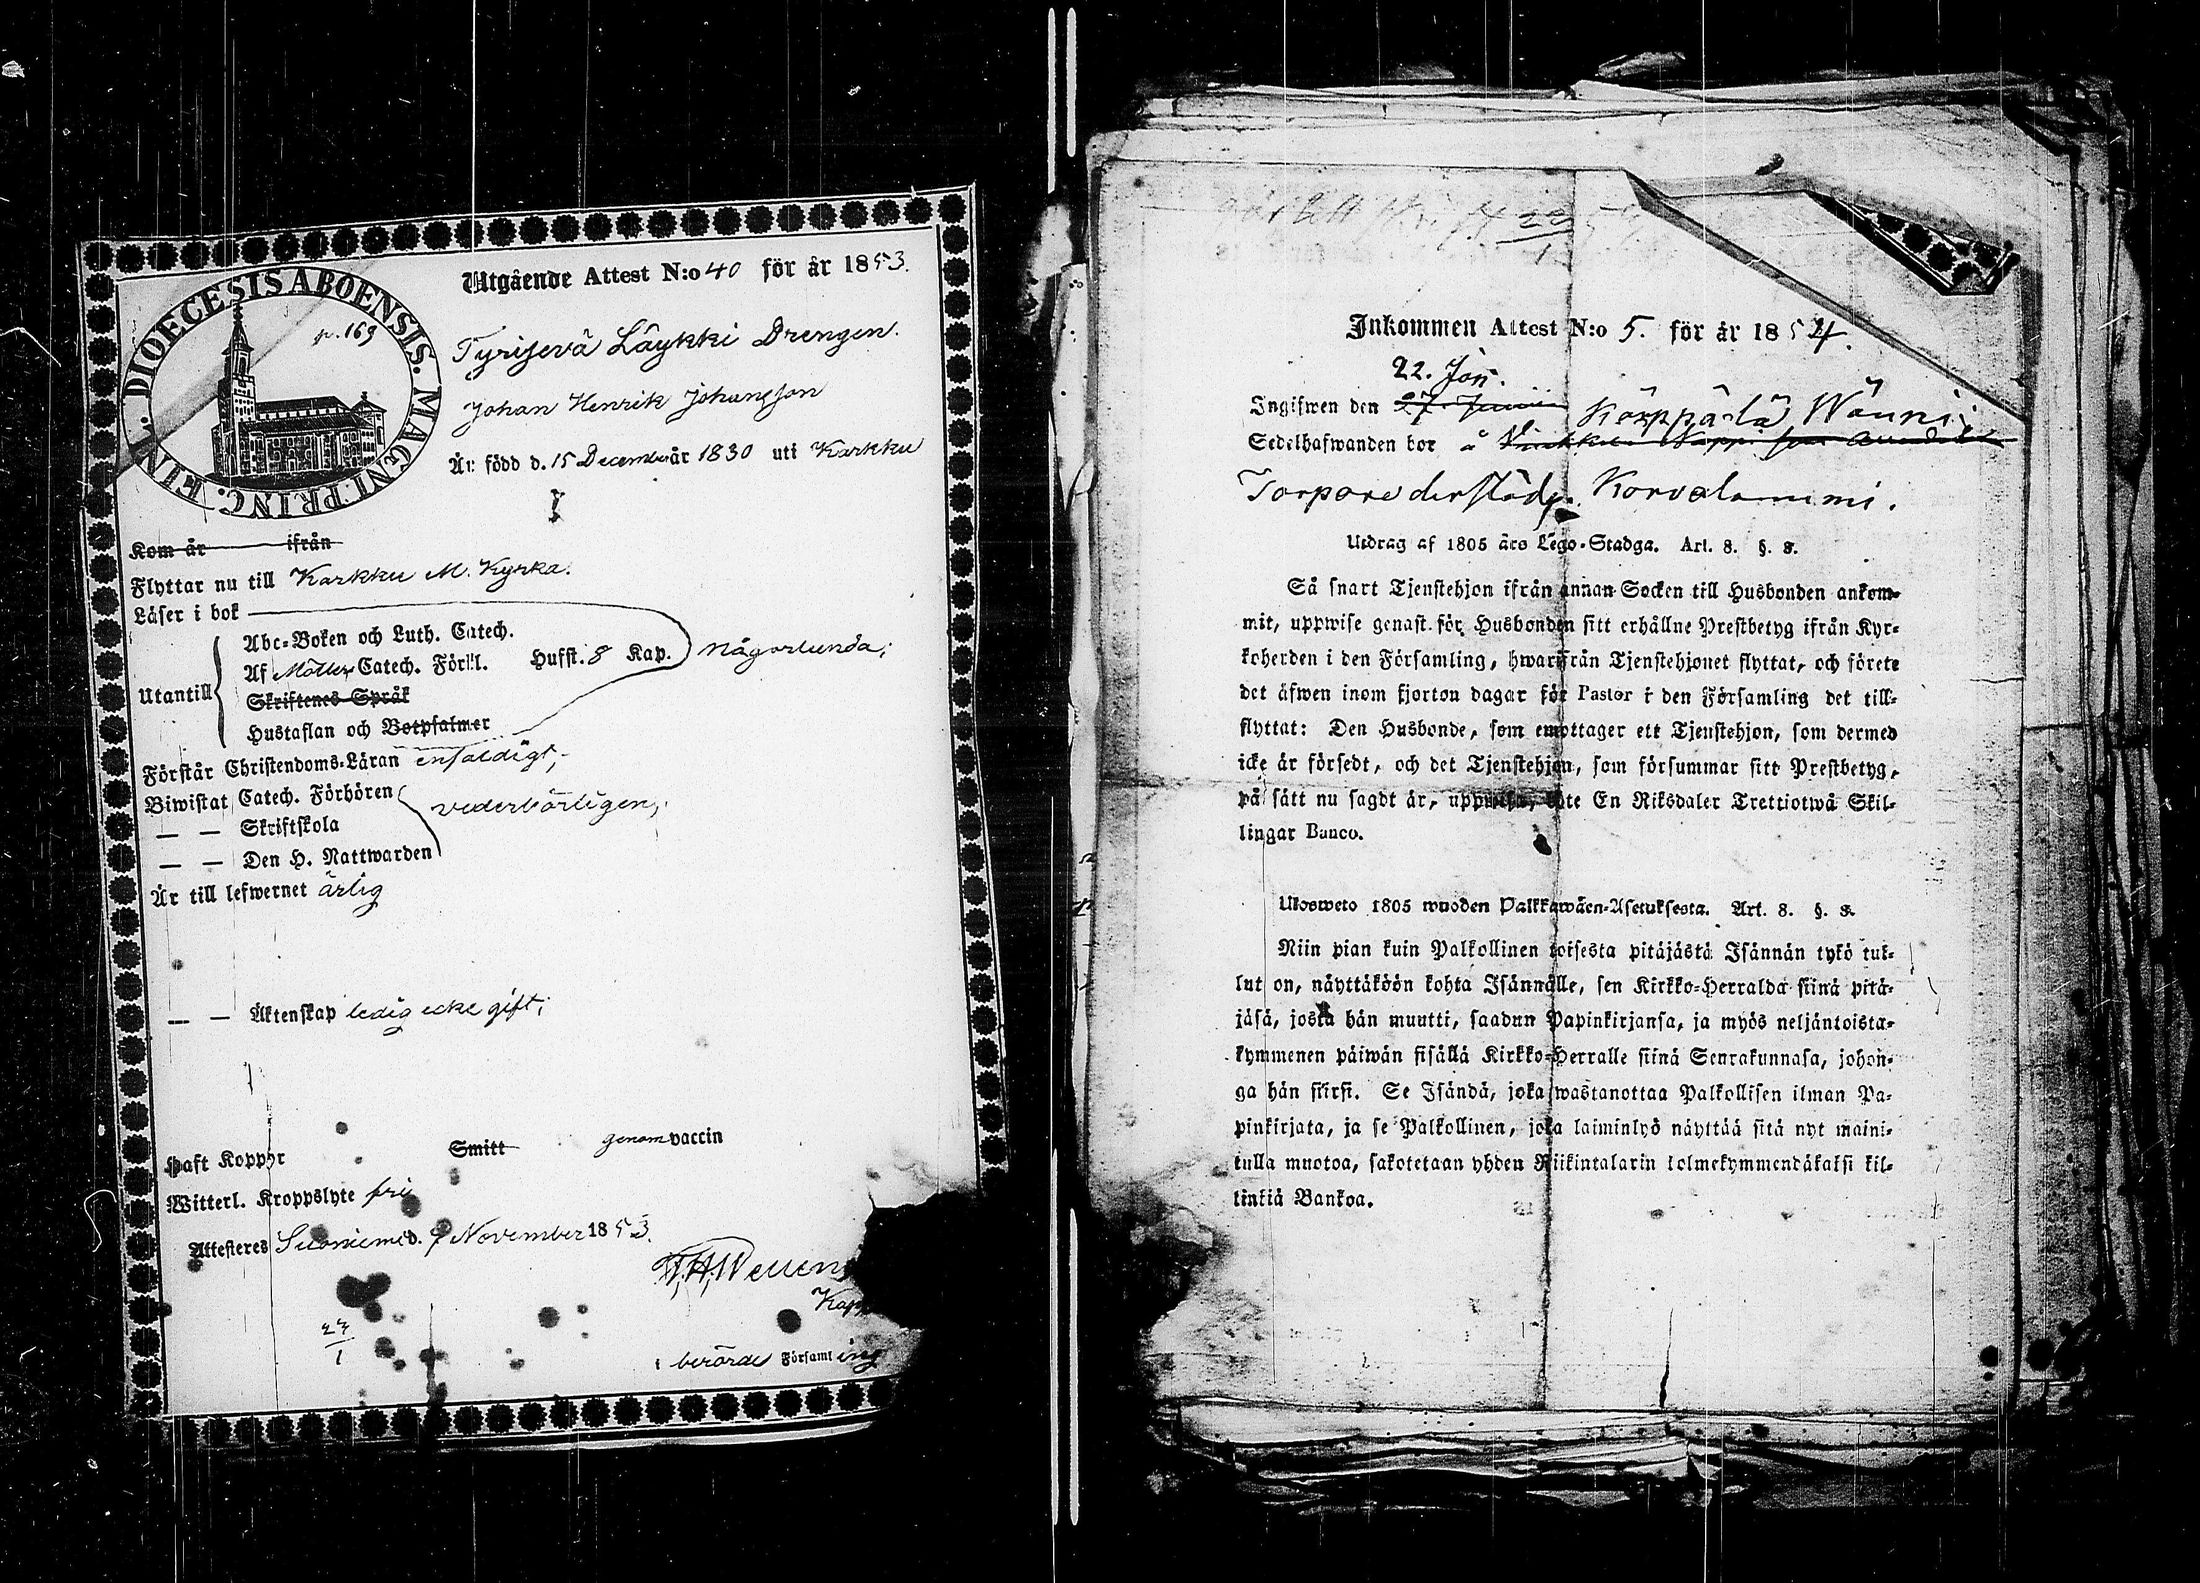 Utgående Attest N:o 40 för år 1853.
DIOECESIS ABOENSIS. MAGNI PRINC. FINL.
p. 169
Tyrisevä Läykki Drengen.
Johan Henrik Johansson
Är född d. 15 December år 1830 uti Karkku
Kom år ifrån
Flyttar nu till Karkku M. Kyrka.
Läser i bok
Utantill
Abc-Boken och Luth. Catech.
Af Möllers Catech. Förkl. Husst. 8 Kap. någorlunda;
Skriftenes Språk
Hustaflan och Botpsalmer
Förstår Christendoms-Läran enfaldigt;
Biwistat Catech. Förhören vederbörligen;
— — Skriftskola
— — Den H. Nattwarden
Är till lefwernet ärlig
— — Äktenskap ledig icke gift;
Haft Koppor Smitt genom vaccin
Witterl. Kroppslyte fri
Attesteres Suoniemi d. 9 November 1853.
Kap
23
1
i berörde Församling
22
1
Inkommen Attest N:o 5. för år 1854.
22. Jan.
Ingifwen den 27. Körppälä Wänni
Sedelhafwanden bor å
Torpare derstäds. Korvalammi.
Utdrag af 1805 års Lego-Stadga. Art. 8. §. 8.
Så snart Tjenstehjon ifrån annan Socken till Husbonden ankom-
mit, uppwise genast för Husbonden sitt erhållne Prestbetyg ifrån Kyr-
koherden i den Församling, hwarifrån Tjenstehjonet flyttat, och förete
det äfwen inom fjorton dagar för Pastor i den Församling det till-
flyttat: Den Husbonde, som emottager ett Tjenstehjon, som dermed
icke är försedt, och det Tjenstehjon, som försummar sitt Prestbetyg,
på sätt nu sagdt är, uppwisa, böte En Riksdaler Trettiotwå Skil-
lingar Banco.
Ulosweto 1805 wuoden Palkkawäen-Asetuksesta. Art. 8. §. 8.
Niin pian kuin Palkollinen toisesta pitäjästä Isännän tykö tul-
lut on, näyttäköön kohta Isännälle, sen Kirkko-Herralda siinä pitä-
jäsä, josta hän muutti, saadun Papinkirjansa, ja myös neljäntoista-
kymmenen päiwän sisällä Kirkko-Herralle siinä Seurakunnasa, johon-
ga hän siirsi. Se Isändä, joka wastanottaa Palkollisen ilman Pa-
pinkirjata, ja se Palkollinen, joka laiminlyö näyttää sitä nyt maini-
tulla muotoa, sakotetaan yhden Riikintalarin kolmekymmendäkaksi kil-
linkiä Bankoa.